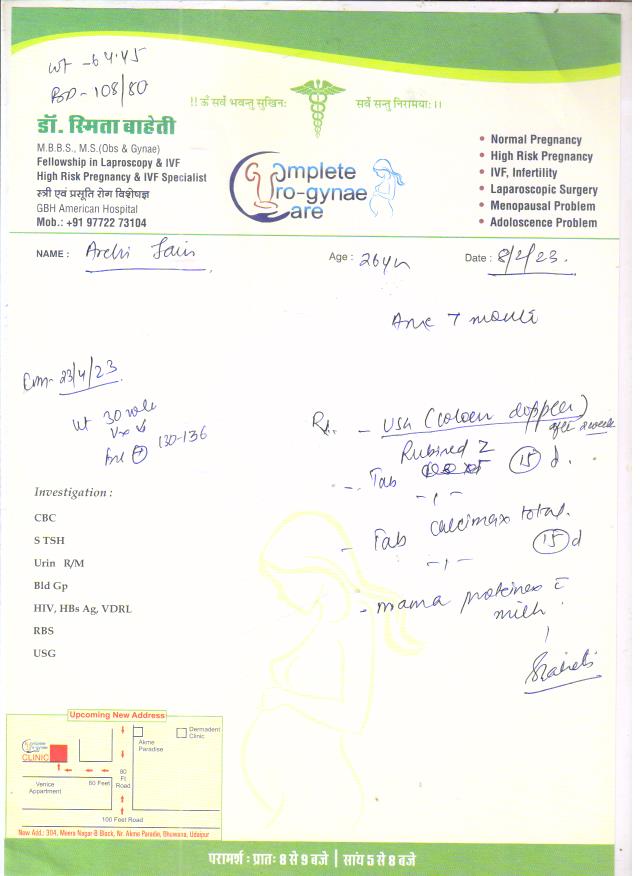 wt - 64.45
BP - 108/80
!! ॐ सर्वे भवन्तु सुखिनः सर्वे सन्तु निरामयाः ।।
डॉ. स्मिता बाहेती
M.B.B.S., M.S.(Obs & Gynae)
Fellowship in Laproscopy & IVF
High Risk Pregnancy & IVF Specialist
स्त्री एवं प्रसूति रोग विशेषज्ञ
GBH American Hospital
Mob.: +91 97722 73104
Complete
Uro-gynae
Care
• Normal Pregnancy
• High Risk Pregnancy
• IVF, Infertility
• Laparoscopic Surgery
• Menopausal Problem
• Adoloscence Problem
NAME : Archi Jain Age : 26 yr Date : 8/2/23.
7 month
23/4/23
ut 30 wk
130-136
Rx. - USG (Colour doppler)
after 2 week
Rubired Z
- Tab 15 d.
- Tab calcimax total.
15 d
- mama proteinex c
milk
Investigation :
CBC
S TSH
Urin R/M
Bld Gp
HIV, HBs Ag, VDRL
RBS
USG
Upcoming New Address
Complete
Uro-gynae
Care
CLINIC
Akme
Paradise
Dermadent
Clinic
Venice
Appartment
60 Feet
80
Ft.
Road
100 Feet Road
New Add.: 304, Meera Nagar-B Block, Nr. Akme Paradie, Bhuwana, Udaipur
परामर्श : प्रातः 8 से 9 बजे | सांय 5 से 8 बजे